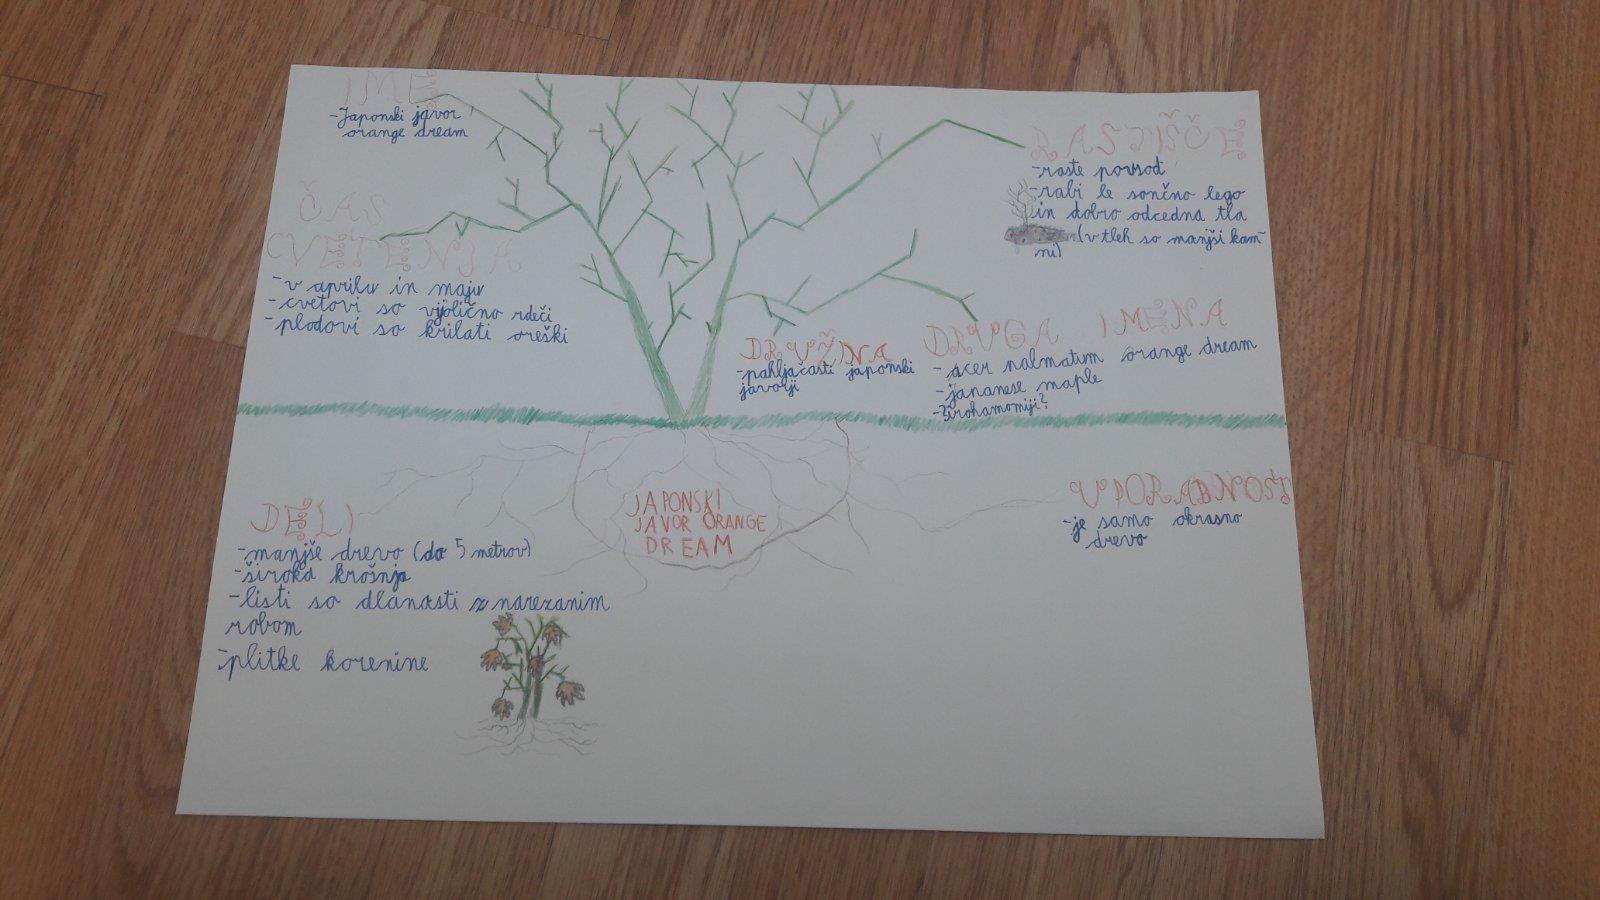 IME
-Japonski javor
orange dream
ČAS
CVETENJA
-v aprilu in maju
-cvetovi so vijolično rdeči
-plodovi so krilati oreški
RASTIŠČE
-raste povsod
-rabi le sončno lego
in dobro odcedna tla
(v tleh so manjši kam-
ni)
DRUŽINA
-pahljačasti japonski
javorji
DRUGA IMENA
-acer nalmatum orange dream
-jananese maple
-?irohamomiji?
JAPONSKI
JAVOR ORANGE
DREAM
DELI
-manjše drevo (do 5 metrov)
-široka krošnja
-listi so dlanasti z narezanim
robom
-plitke korenine
UPORABNOST
-je samo okrasno
drevo